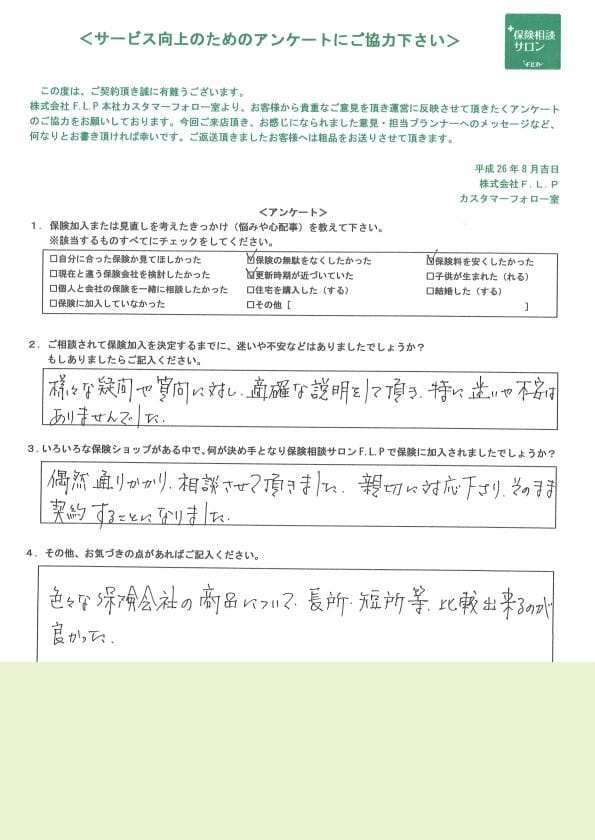 ＜サービス向上のためのアンケートにご協力下さい＞
保険相談
サロン
F.L.P
この度は、ご契約頂き誠に有難うございます。
株式会社F.L.P本社カスタマーフォロー室より、お客様から貴重なご意見を頂き運営に反映させて頂きたくアンケート
のご協力をお願いしております。今回ご来店頂き、お感じになられました意見・担当プランナーへのメッセージなど、
何なりとお書き頂ければ幸いです。ご返送頂きましたお客様へは粗品をお送りさせて頂きます。
平成26年8月吉日
株式会社F.L.P
カスタマーフォロー室
＜アンケート＞
1．保険加入または見直しを考えたきっかけ（悩みや心配事）を教えて下さい。
※該当するものすべてにチェックをしてください。
□自分に合った保険か見てほしかった ☑保険の無駄をなくしたかった ☑保険料を安くしたかった
□現在と違う保険会社を検討したかった ☑更新時期が近づいていた □子供が生まれた（れる）
□個人と会社の保険を一緒に相談したかった □住宅を購入した（する） □結婚した（する）
□保険に加入していなかった □その他［ ］
2．ご相談されて保険加入を決定するまでに、迷いや不安などはありましたでしょうか？
もしありましたらご記入ください。
様々な疑問や質問に対し、適確な説明をして頂き、特に迷いや不安は
ありませんでした。
3．いろいろな保険ショップがある中で、何が決め手となり保険相談サロンF.L.Pで保険に加入されましたでしょうか？
偶然通りかかり、相談させて頂きました。親切に対応下さり、そのまま
契約することになりました。
4．その他、お気づきの点があればご記入ください。
色々な保険会社の商品について、長所・短所等、比較出来るのが
良かった。